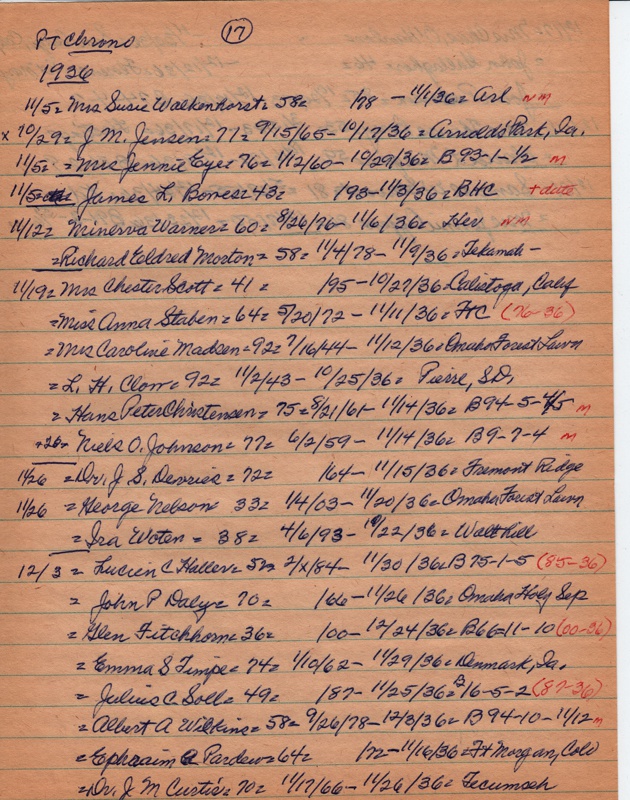 PT Chrono (17)
1936
11/5= Mrs Susie Walkenhorst= 58= /78 - 11/1/36= Arl nm
x 10/29= J. M. Jensen= 71= 9/15/65- 10/17/36= Arnolds Park, Ia.
11/5= = Mrs Jennie Eye= 76= 1/12/60- 10/29/36= B 93-1-1/2 m
11/5= James L. Bowes= 43= /93- 11/3/36= BHC + date
11/12= Minerva Warner= 60= 8/26/76- 11/6/36= Her nm
= Richard Eldred Morton= 58= 11/4/78- 11/9/36= Tekamah -
11/19= Mrs Chester Scott= 41= /95- 10/27/36= Calistoga, Calif
= Miss Anna Staben= 64= 5/20/72- 11/11/36= FtC (76-36)
= Mrs Caroline Madsen= 92= 7/16/44- 11/12/36= Omaha Forest Lawn
= L. H. Clow= 92= 11/2/43- 10/25/36= Pierre, S.D.
= Hans Peter Christensen= 75= 8/21/61- 11/14/36= B 94-5-4/5 m
+26= Niels O. Johnson= 77= 6/2/59- 11/14/36= B 9-7-4 m
11/26 = Dr. J. S. Devries= 72= /64- 11/15/36= Fremont Ridge
11/26 = George Nelson 33= 1/4/03- 11/20/36= Omaha Forest Lawn
= Ira Woten = 38= 4/6/93- 10/22/36= Walthill
12/3 = Lucien C Haller= 52= 2/x/84- 11/30/36= B 75-1-5 (85-36)
= John P Daly= 70= /66- 11/26/36= Omaha Holy Sep
= Glen Fitchhorn= 36= /00- 12/24/36= B66=11-10 (00-36)
= Emma S Timpe= 74= 1/10/62- 11/29/36= Denmark, Ia.
= Julius C. Soll= 49= /87- 11/25/36= B 16-5-2 (87-36)
= Albert A Wilkins= 58= 9/26/78- 12/3/36= B 94-10-11/12 m
= Ephraim Pardew= 64= /72- 11/16/36= Ft Morgan, Colo
= Dr. J. M Curtis= 70= 11/17/66- 11/26/36= Tecumseh